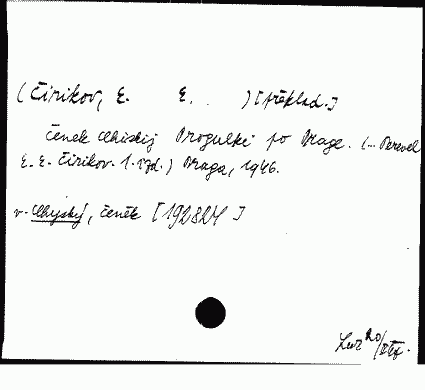 (Čirikov, E. E. ) [překlad.]
Čeněk Chiskij Progulki po Prage. (... Perevel
E. E. Čirikov. 1. izd.) Praga, 1946.
v. Chyský, Čeněk [192824 ]